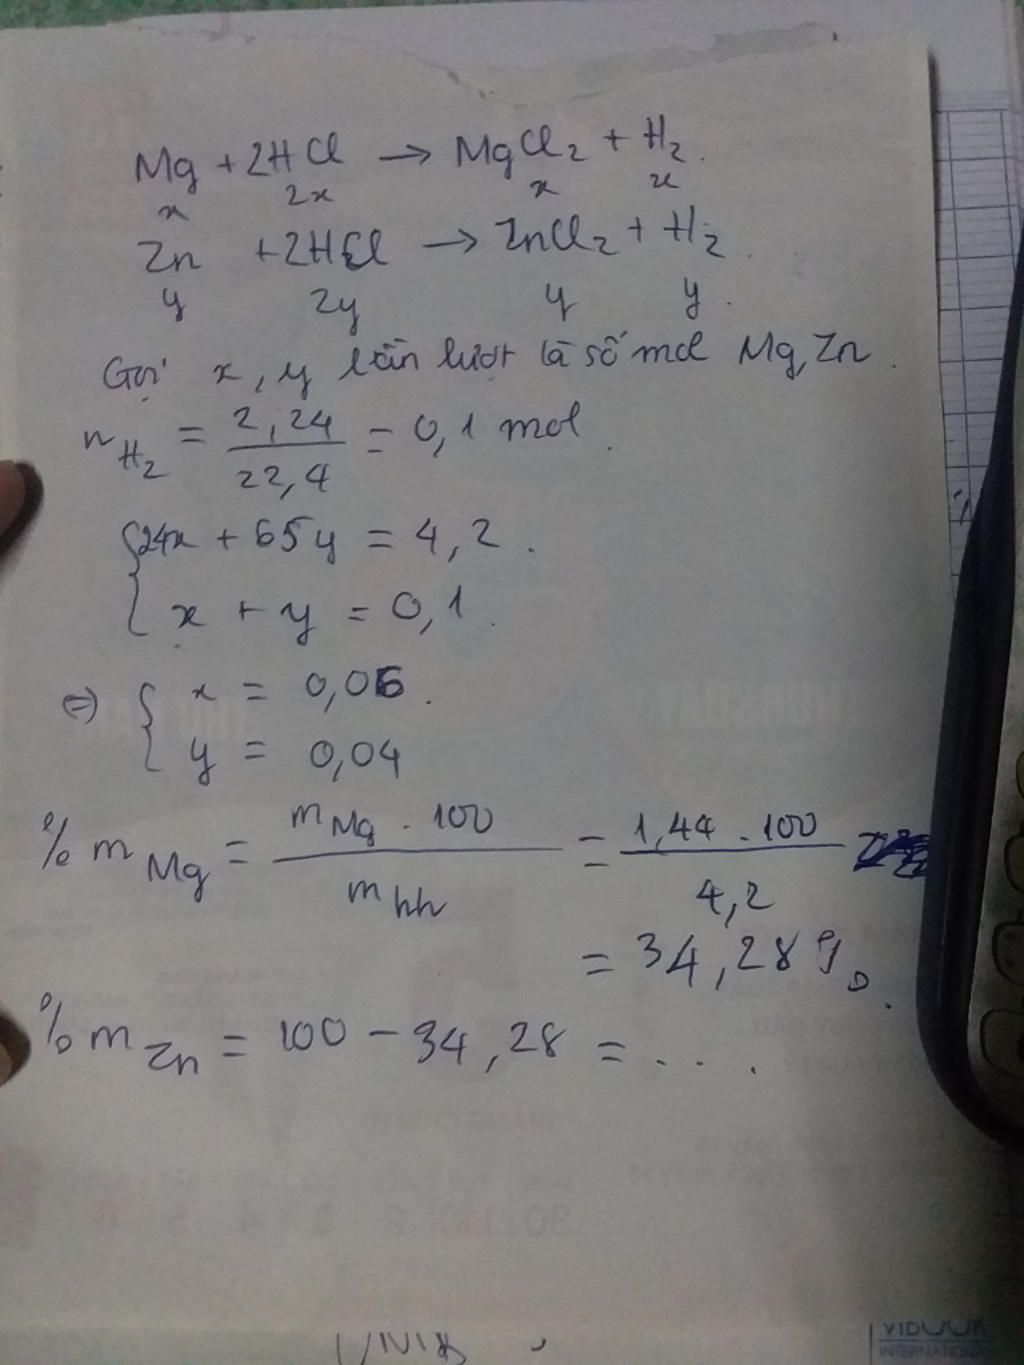 Mg + 2HCl → MgCl₂ + H₂.
x 2x x x
Zn + 2HCl → ZnCl₂ + H₂.
y 2y y y.
Gọi x, y lần lượt là số mol Mg, Zn.
n_H₂ = 2,24 / 22,4 = 0,1 mol.
{ 24x + 65y = 4,2.
x + y = 0,1.
=> { x = 0,06.
y = 0,04
% m Mg = m Mg . 100 / m hh = 1,44 . 100 / 4,2
= 34,28 %.
% m Zn = 100 - 34,28 = ...
VIDOOK
INTERNATIONAL